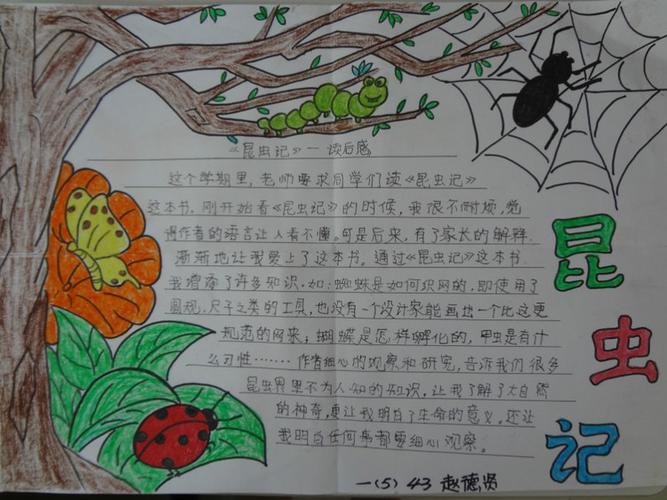 《昆虫记》—读后感
这个学期里,老师要求同学们读《昆虫记》
这本书。刚开始看《昆虫记》的时候,我很不耐烦,觉
得作者的语言让人看不懂。可是后来,有了家长的解释.
渐渐地让我爱上了这本书。通过《昆虫记》这本书.
我增添了许多知识.如:蜘蛛是如何织网的,即使用了
圆规,尺子之类的工具,也没有一个设计家能画出一个比这更
规范的网来;蝴蝶是怎样孵化的,甲虫是有什
么习性………作者细心的观察和研究,告诉我们很多
昆虫界里不为人知的知识,让我了解了大自然
的神奇,更让我明白了生命的意义。还让
我明白任何事都要细心观察。
一(5) 43 赵德贤
昆
虫
记